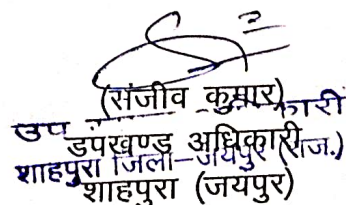 (संजीव कुमार)
उप कारी
उपखण्ड अधिकारी
शाहपुरा जिला-जयपुर (राज.)
शाहपुरा (जयपुर)